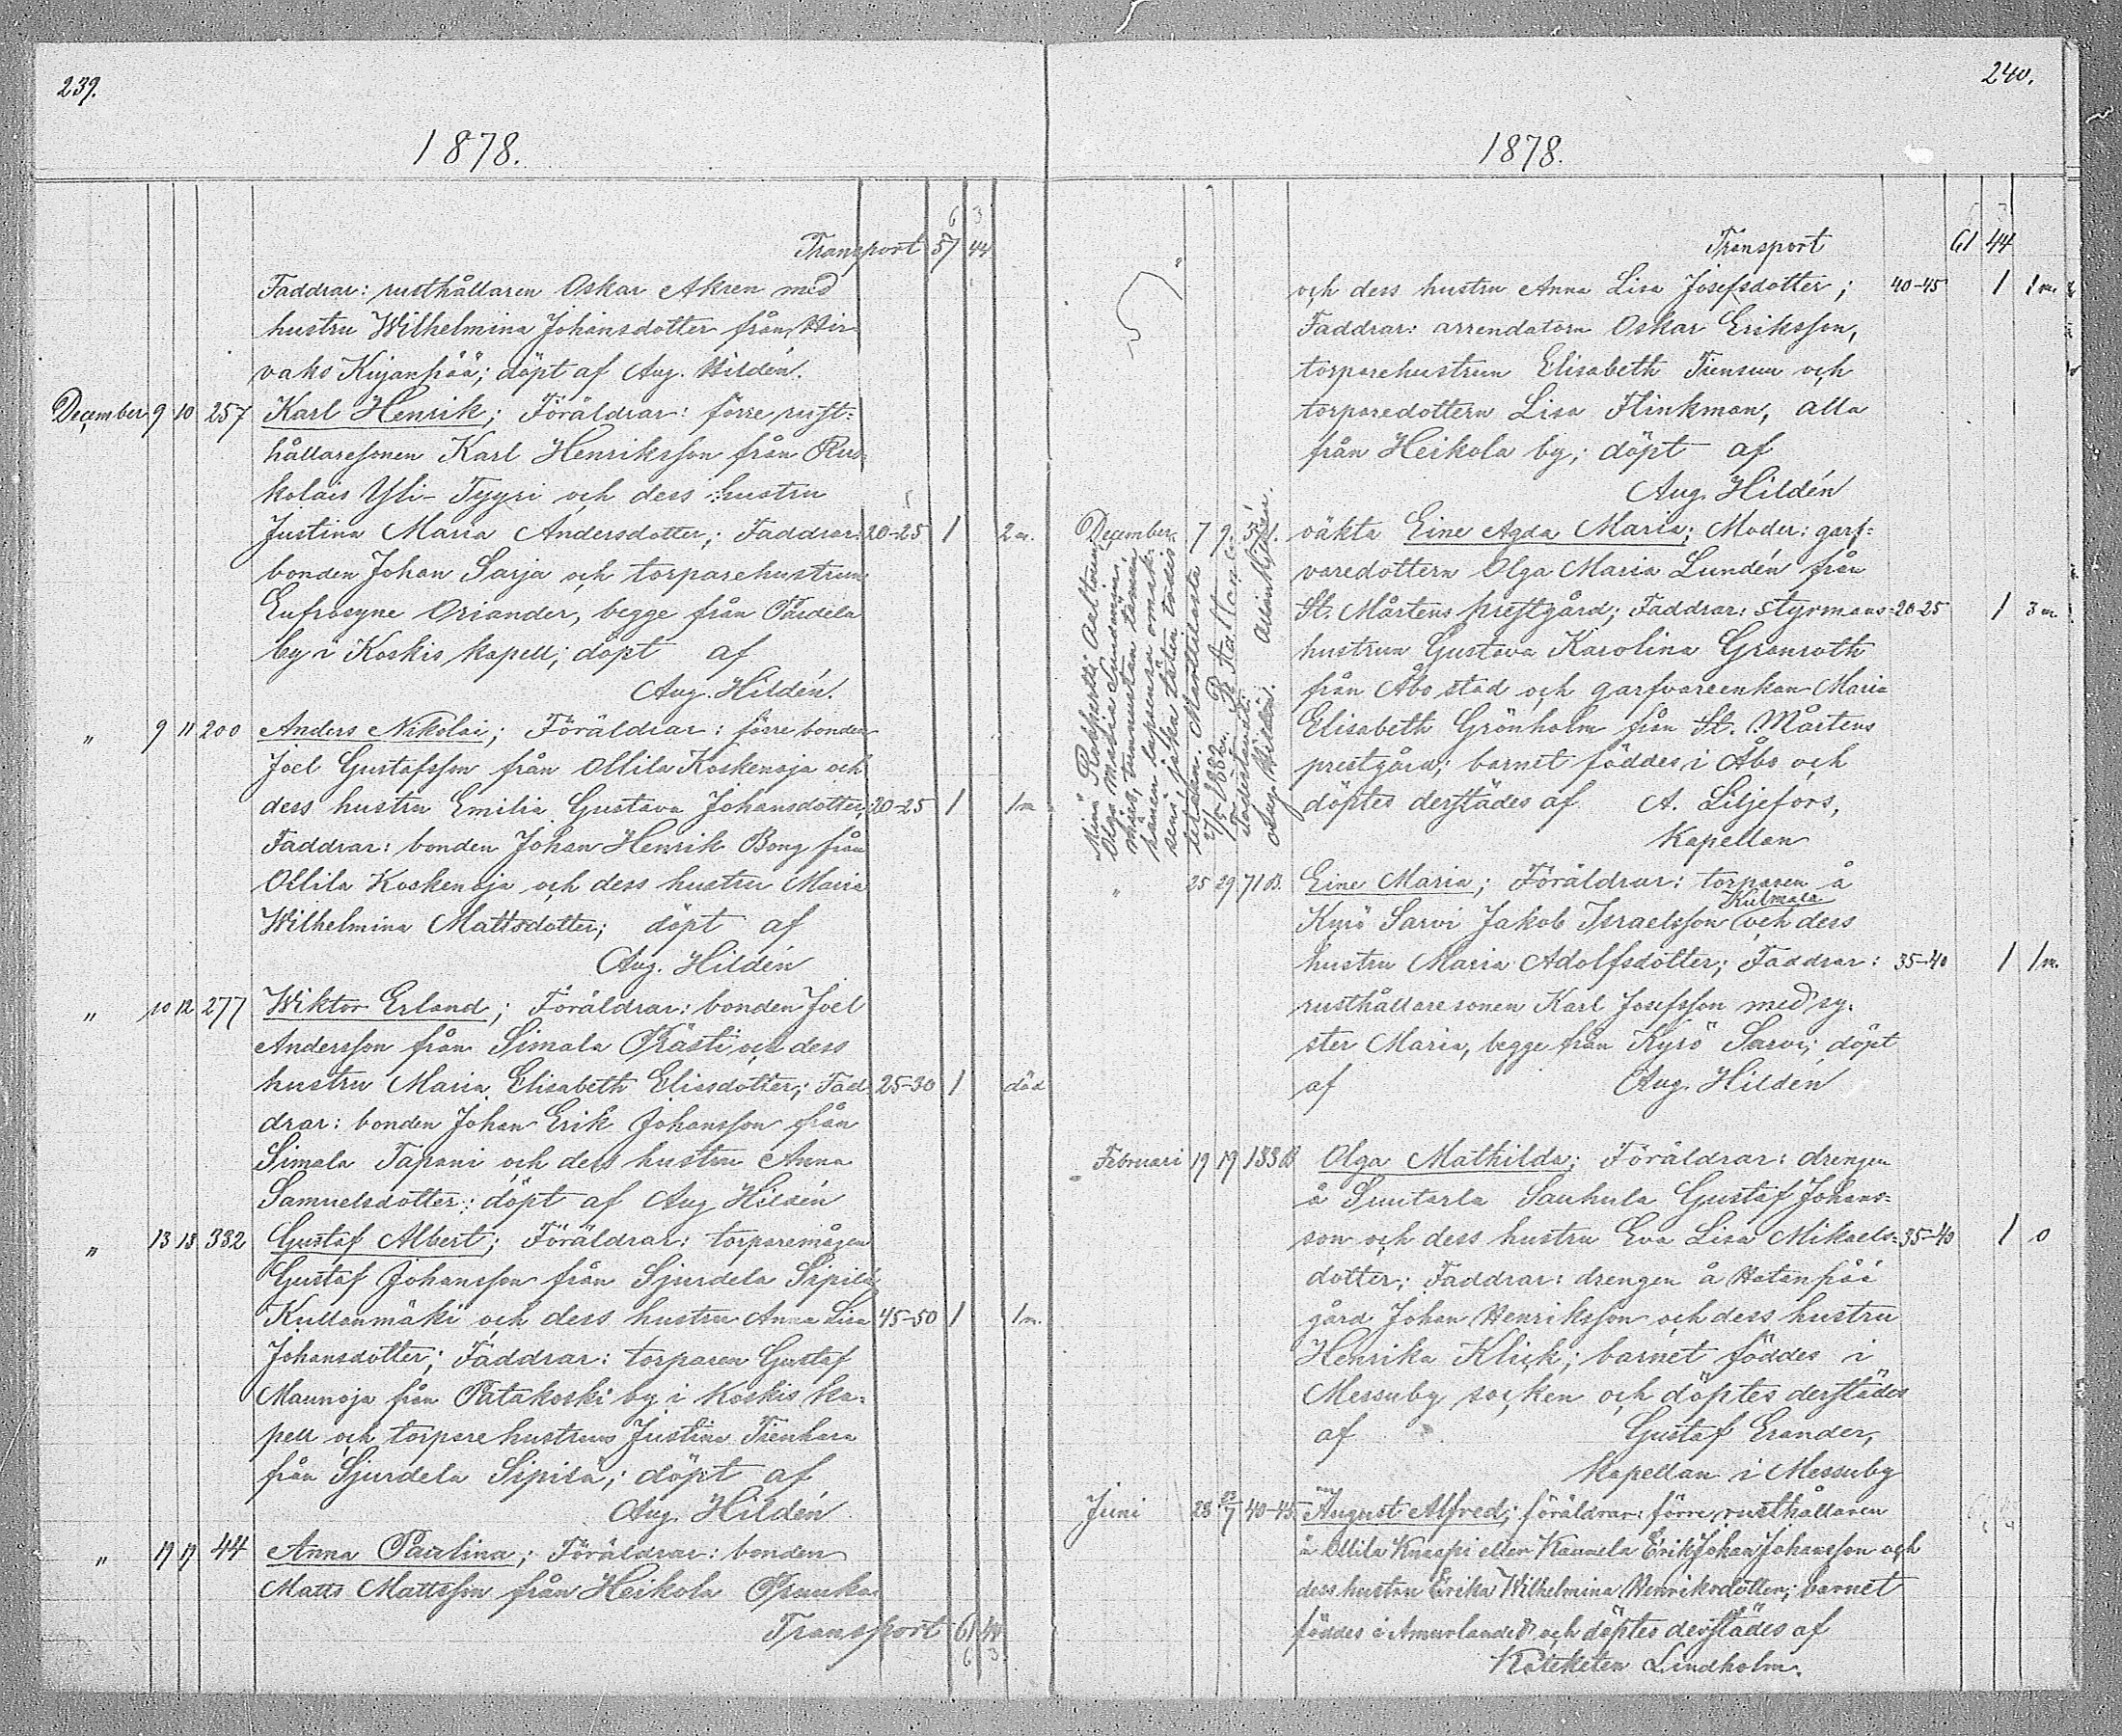 239.
1878.
6 3
Transport 57 44
Faddrar: rusthållaren Oskar Akren med
hustru Wilhelmina Johansdotter från Hir-
vaks Kujanpää; döpt af Aug. Hildén.
December 9 10 257 Karl Henrik; Föräldrar: förre rust-
hållaresonen Karl Henriksson från Rus-
kolais Yli-Tyyri och dess hustru
Justina Maria Andersdotter; Faddrar: 20-25 1 2 m.
bonden Johan Sarja och torparehustrun
Eufrosyne Oriander, begge från Pardela
by i Koskis kapell; döpt af
Aug. Hildén.
" 9 11 200 Anders Nikolai; Föräldrar: förre bonden
Joel Gustafsson från Ollila Koskenoja och
dess hustru Emilia Gustava Johansdotter; 20-25 1 1 m
Faddrar: bonden Johan Henrik Bong från
Ollila Koskenoja och dess hustru Maria
Wilhelmina Mattsdotter; döpt af
Aug. Hildén
" 10 12 277 Wiktor Erland; Föräldrar: bonden Joel
Andersson från Simala Prästi och dess
hustru Maria Elisabeth Eliasdotter; Fad- 25-30 1 död
drar: bonden Johan Erik Johansson från
Simala Tapani och dess hustru Anna
Samuelsdotter; döpt af Aug Hildén
" 13 13 332 Gustaf Albert; Föräldrar: torparemågen
Gustaf Johansson från Sjurdela Sipilä
Kullanmäki och dess hustru Anna Lisa 45-50 1 1 m.
Johansdotter; Faddrar: torparen Gustaf
Maunoja från Patakoski by i Koskis ka-
pell och torparehustrun Justina Tienhara
från Sjurdela Sipilä; döpt af
Aug. Hildén
" 19 19 44 Anna Paulina; Föräldrar: bonden
Matts Mattsson från Heikola Prauka
Transport 61 44
6 3
240.
1878.
Transport 61 44
och dess hustru Anna Lisa Josefsdotter; 40-45 1 1 m.
Faddrar: arrendatorn Oskar Eriksson,
torparehustrun Elisabeth Tuensuu och
torparedottern Lisa Flinkman, alla
från Heikola by; döpt af
Aug. Hildén
December 7 9 oäkta Eine Agda Maria; Moder: garf-
varedottern Olga Maria Lundén från
St. Mårtens prestgård; Faddrar: styrmans- 20-25 1 3 m.
hustrun Gustava Karolina Granroth
från Åbo stad och garfvareenkan Maria
Elisabeth Grönholm från St. Mårtens
prestgård; barnet föddes i Åbo och
döptes derstädes af A. Liljefors,
Kapellan
" 25 29 71 B. Eine Maria; Föräldrar: torparen å
Kulmala
Kyrö Sarvi Jakob Israelsson och dess
hustru Maria Adolfsdotter; Faddrar: 35-40 1 1 m.
rusthållaresonen Karl Josefsson med sy-
ster Maria, begge från Kyrö Sarvi; döpt
af Aug. Hildén
Februari 19 19 133 B Olga Mathilda; Föräldrar: drengen
å Suutarla Sauhula Gustaf Johans-
son och dess hustru Eva Lisa Mikaels- 35-40 1 0
dotter; Faddrar: drengen å Hatanpää
gård Johan Henriksson och dess hustru
Henrika Klick; barnet föddes i
Messuby socken och döptes derstädes
af Gustaf Erander,
Kapellan i Messuby
Juni 28 22/7 40-45 August Alfred; föräldrar: förre rusthållaren
å Ollila Knaapi eller Kaunela Erik Johan Johansson och
dess hustru Erika Wilhelmina Henriksdotter; barnet
föddes i Amurlandet och döptes derstädes af
Kateketen Lindholm.